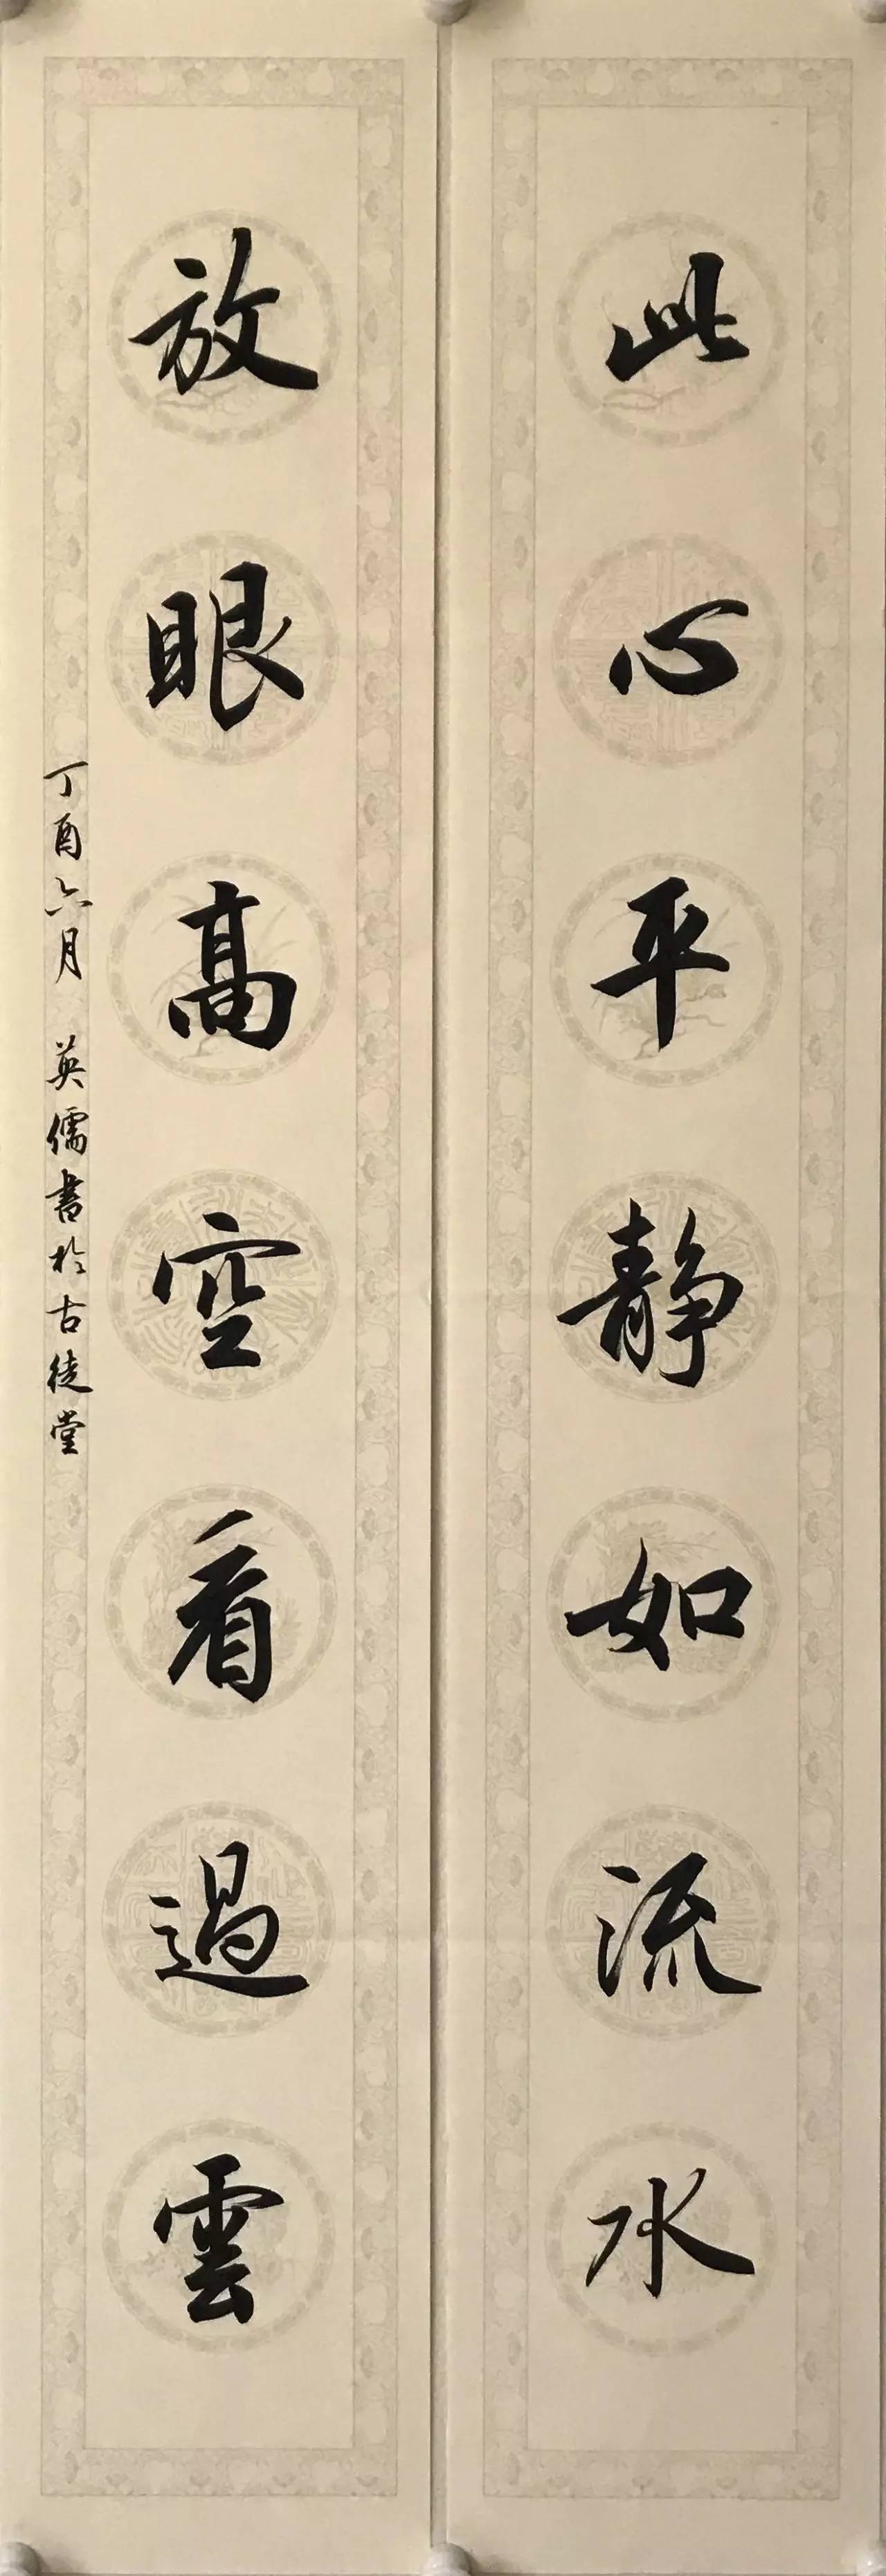 此心平靜如流水
放眼高空看過雲
丁酉六月 英儒書於古徒堂